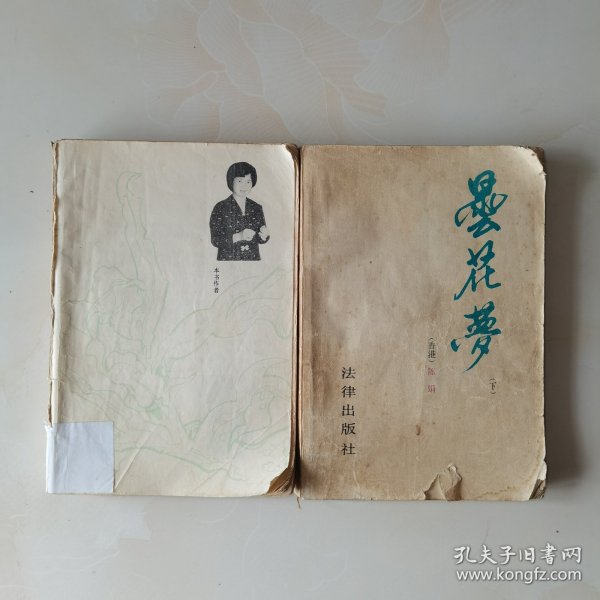 本书作者
曇花夢
(下)
(香港) 陈娟
法律出版社
孔夫子旧书网
www.kongfz.com